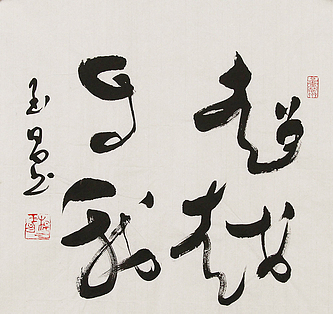 超越
自我
玉